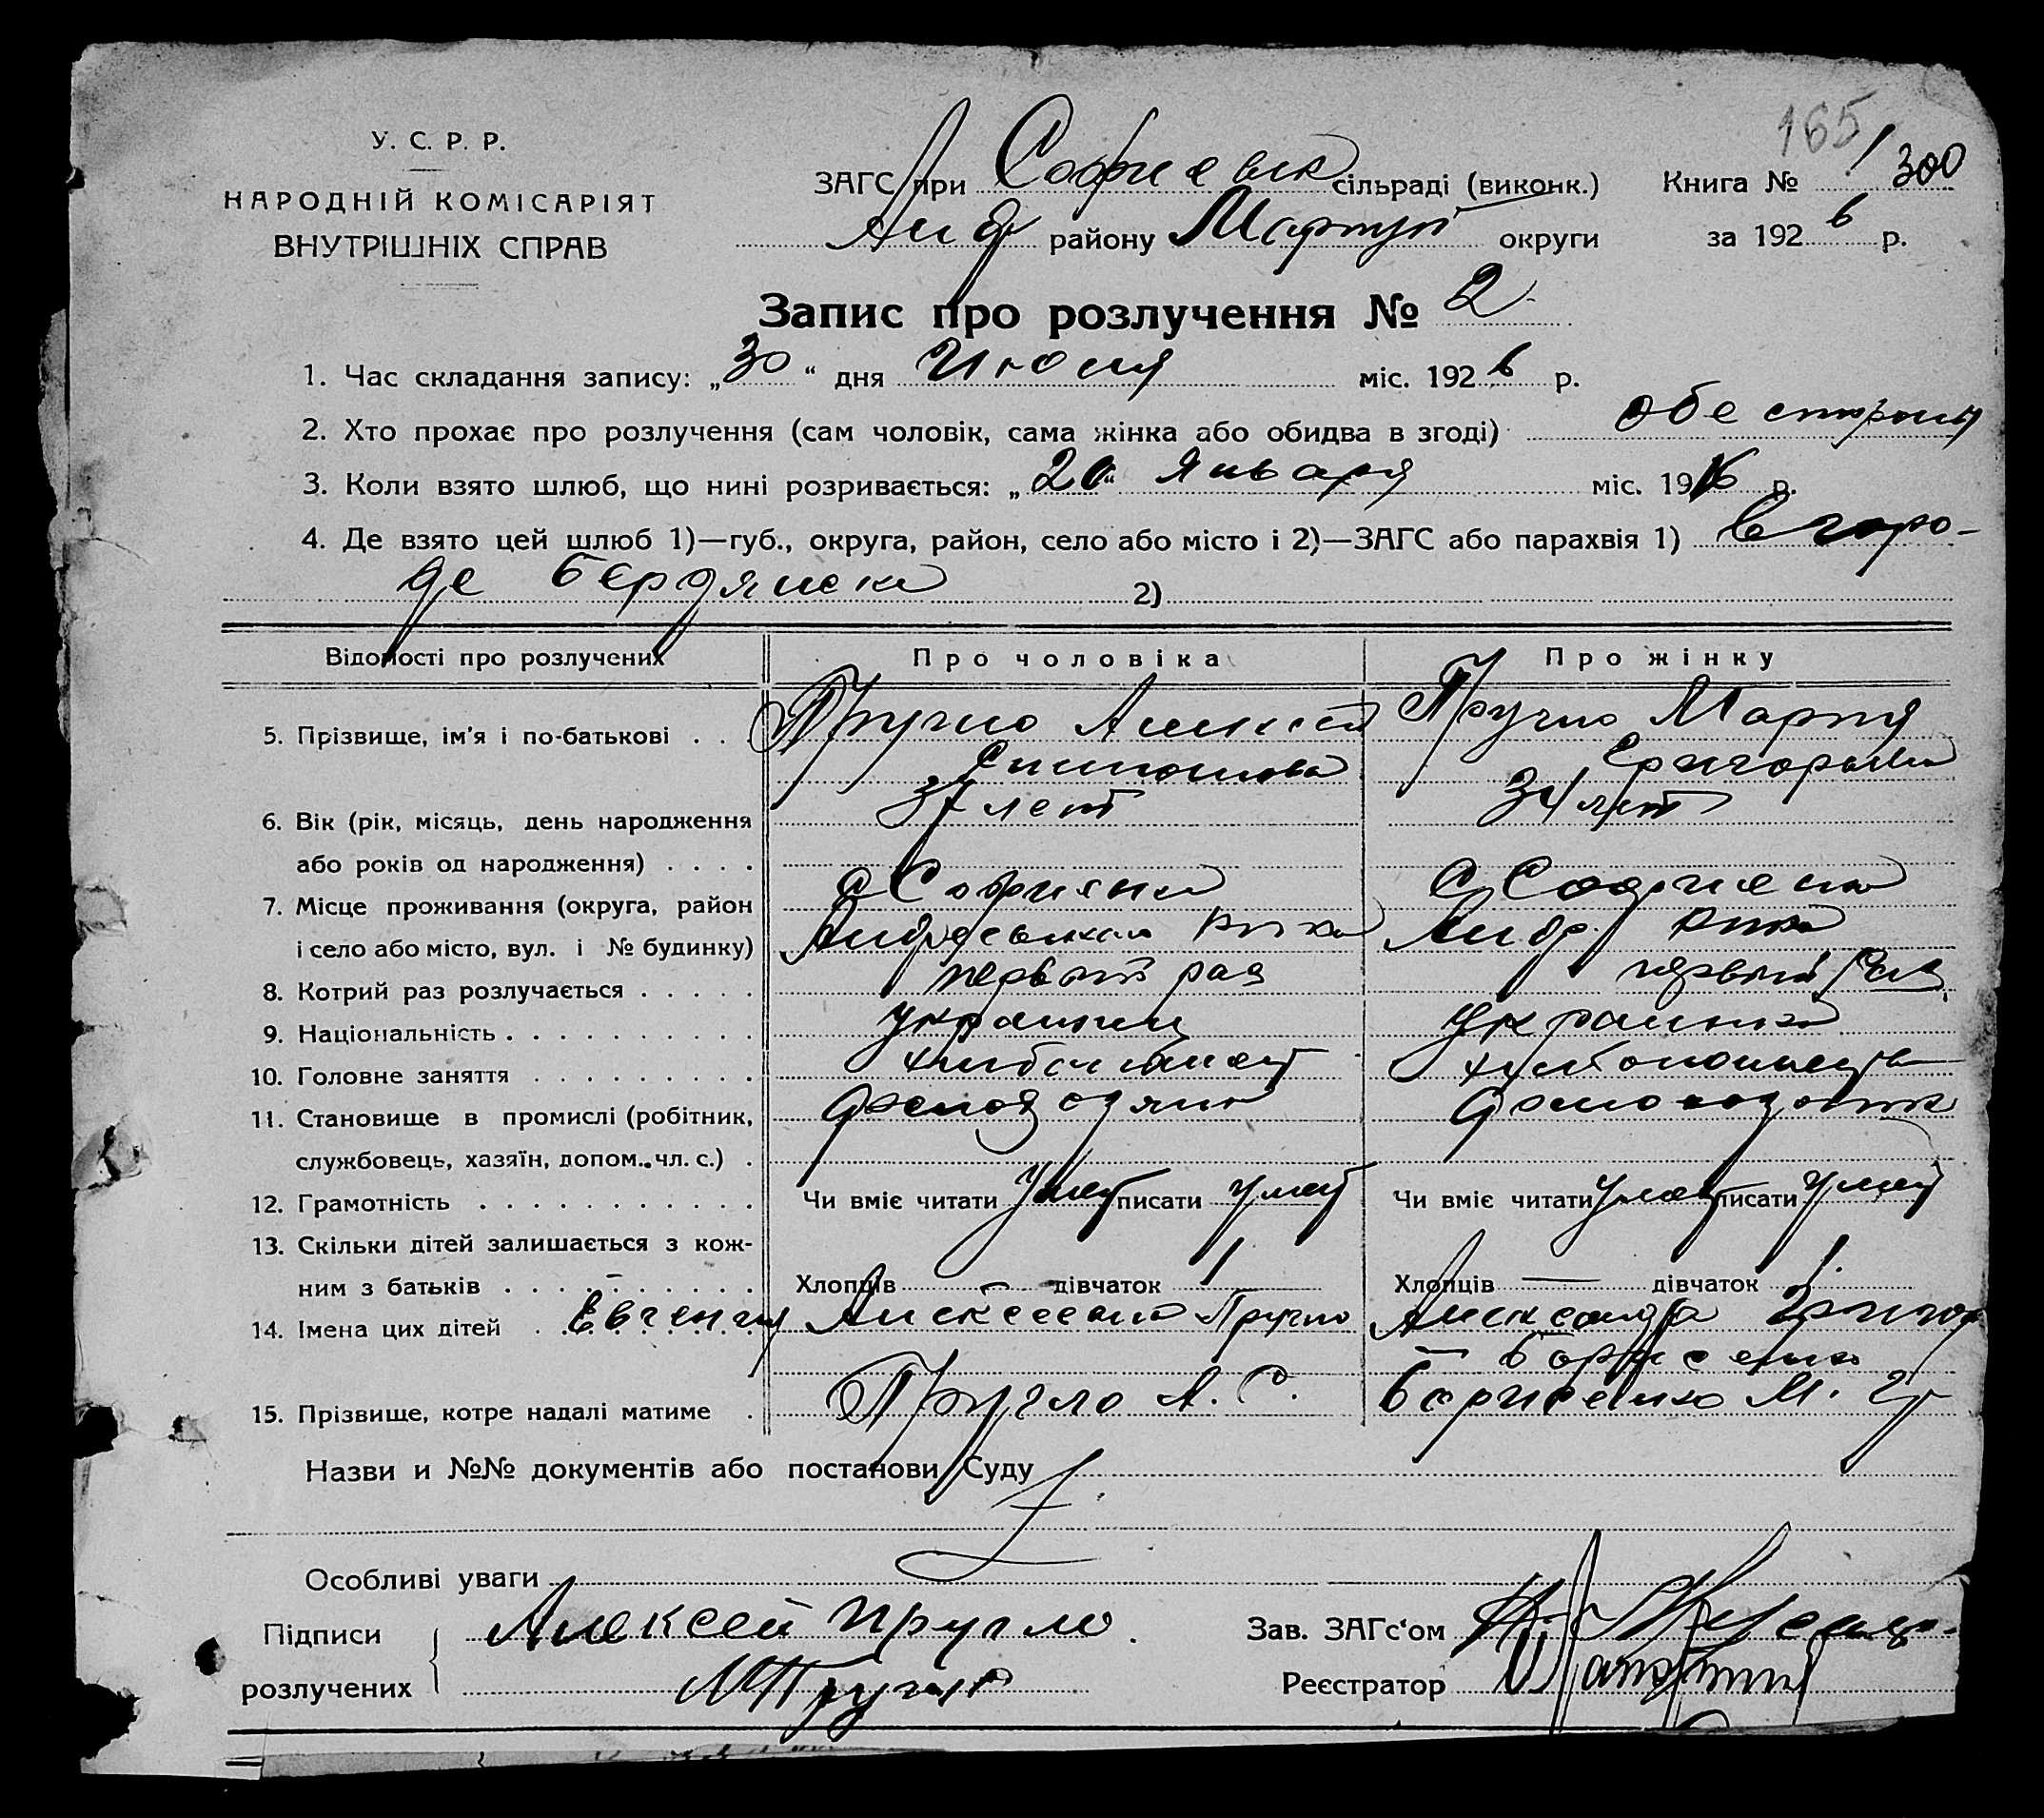 165
У. С. Р. Р.
НАРОДНІЙ КОМІСАРІЯТ
ВНУТРІШНІХ СПРАВ
ЗАГС при Софиевск сільраді (виконк.)
Книга № 1 300
Анд району Мариуп округи
за 1926 р.
Запис про розлучення № 2
1. Час складання запису: „30“ дня Июня міс. 1926 р.
2. Хто прохає про розлучення (сам чоловік, сама жінка або обидва в згоді) обе стороны
3. Коли взято шлюб, що нині розривається: „20“ Января міс. 1916 р.
4. Де взято цей шлюб 1)—губ., округа, район, село або місто і 2)—ЗАГС або парахвія 1) в горо-
де Бердянске 2)
Відомості про розлучених Про чоловіка Про жінку
5. Прізвище, ім'я і по-батькові . . . Пругло Алексей Пругло Мария
Григорьевна
6. Вік (рік, місяць, день народження 37 лет 34 лет
або років од народження) . . . .
7. Місце проживання (округа, район с Софиевка с Софиевка
і село або місто, вул. і № будинку) Андреевского Рика Андр. Рика
8. Котрий раз розлучається . . . . . первый раз первый раз
9. Національність . . . . . . . . . . украинец украинка
10. Головне заняття . . . . . . . . .
11. Становище в промислі (робітник,
службовець, хазяїн, допом. чл. с.) .
12. Грамотність . . . . . . . . . . . Чи вміє читати умеет писати умеет Чи вміє читати умеет писати умеет
13. Скільки дітей залишається з кож-
ним з батьків . . . . . . . . . . Хлопців — дівчаток 1 Хлопців — дівчаток 1.
14. Імена цих дітей . Евгения Алексеевна Пругло Александра
Борисенко
15. Прізвище, котре надалі матиме . Пругло А. С. Борисенко М. Гр
Назви и №№ документів або постанови Суду
Особливі уваги
Підписи Алексей Пругло. Зав. ЗАГс'ом
розлучених М Пругло Реєстратор